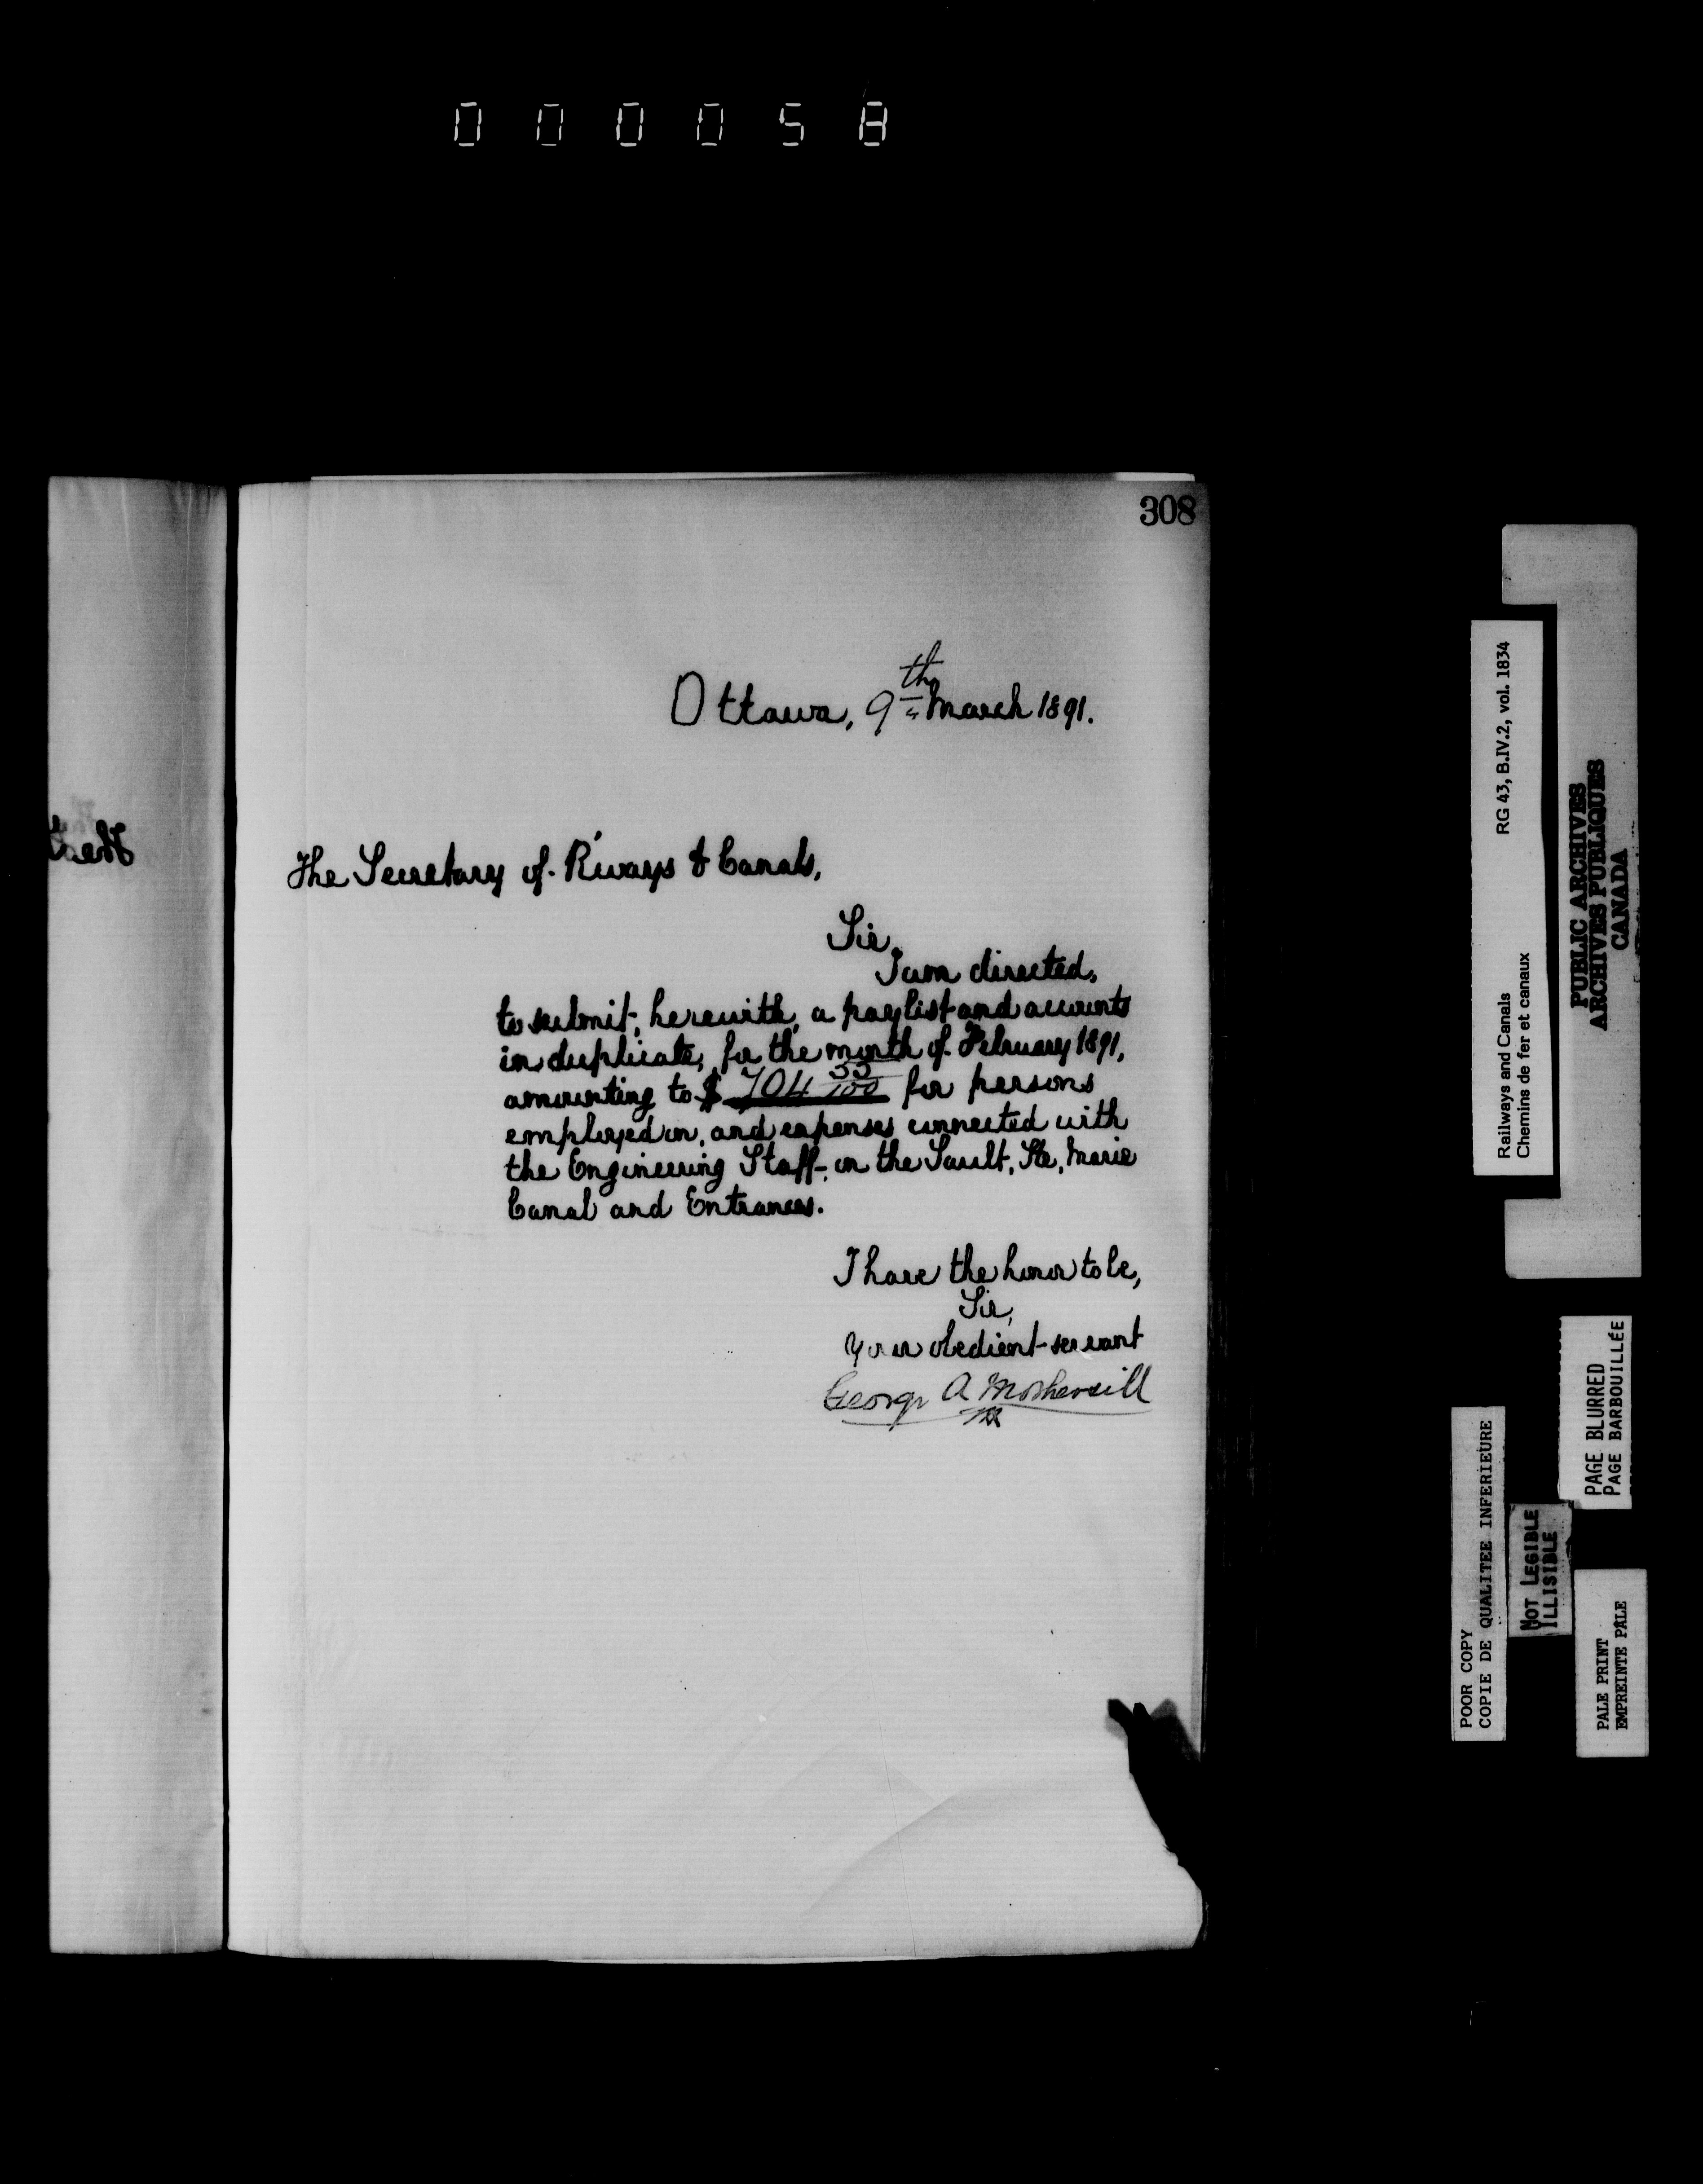 000058
308
Ottawa, 9th March 1891.
The Secretary of R'ways & Canals,
Sir,
I am directed,
to submit, herewith, a paylist and accounts
in duplicate, for the month of February 1891,
amounting to $ 704 55/100 for persons
employed on, and expenses connected with
the Engineering Staff, on the Sault, Ste, Marie
Canal and Entrances.
I have the honor to be,
Sir,
Your obedient servant
George A Mothersill
Railways and Canals RG 43, B.IV.2, vol. 1834
Chemins de fer et canaux
PUBLIC ARCHIVES
ARCHIVES PUBLIQUES
CANADA
PAGE BLURRED
PAGE BARBOUILLÉE
POOR COPY
COPIE DE QUALITEE INFERIEURE
NOT LEGIBLE
ILLISIBLE
PALE PRINT
EMPREINTE PÂLE